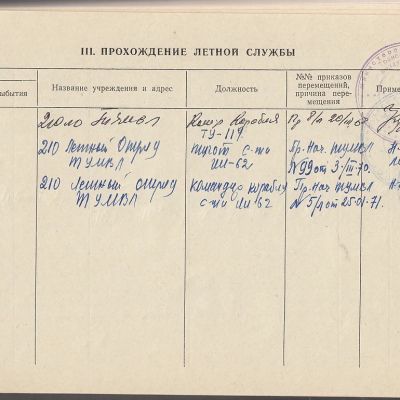 III. ПРОХОЖДЕНИЕ ЛЕТНОЙ СЛУЖБЫ
Название учреждения и адрес
Должность
№№ приказов перемещений, причина пере- мещения
Приме
210 ло
Корабля
ТУ-114
210 Летный Отряд
ТУМВЛ
пилот с-та
ИЛ-62
Пр. Нач. ТУМВЛ
N 99 от 3/III-70.
210 Летный отряд
ТУМВЛ
командир корабля
с-та Ил 62
Пр. Нач ТУМВЛ
N 5/л от 25-01-71.